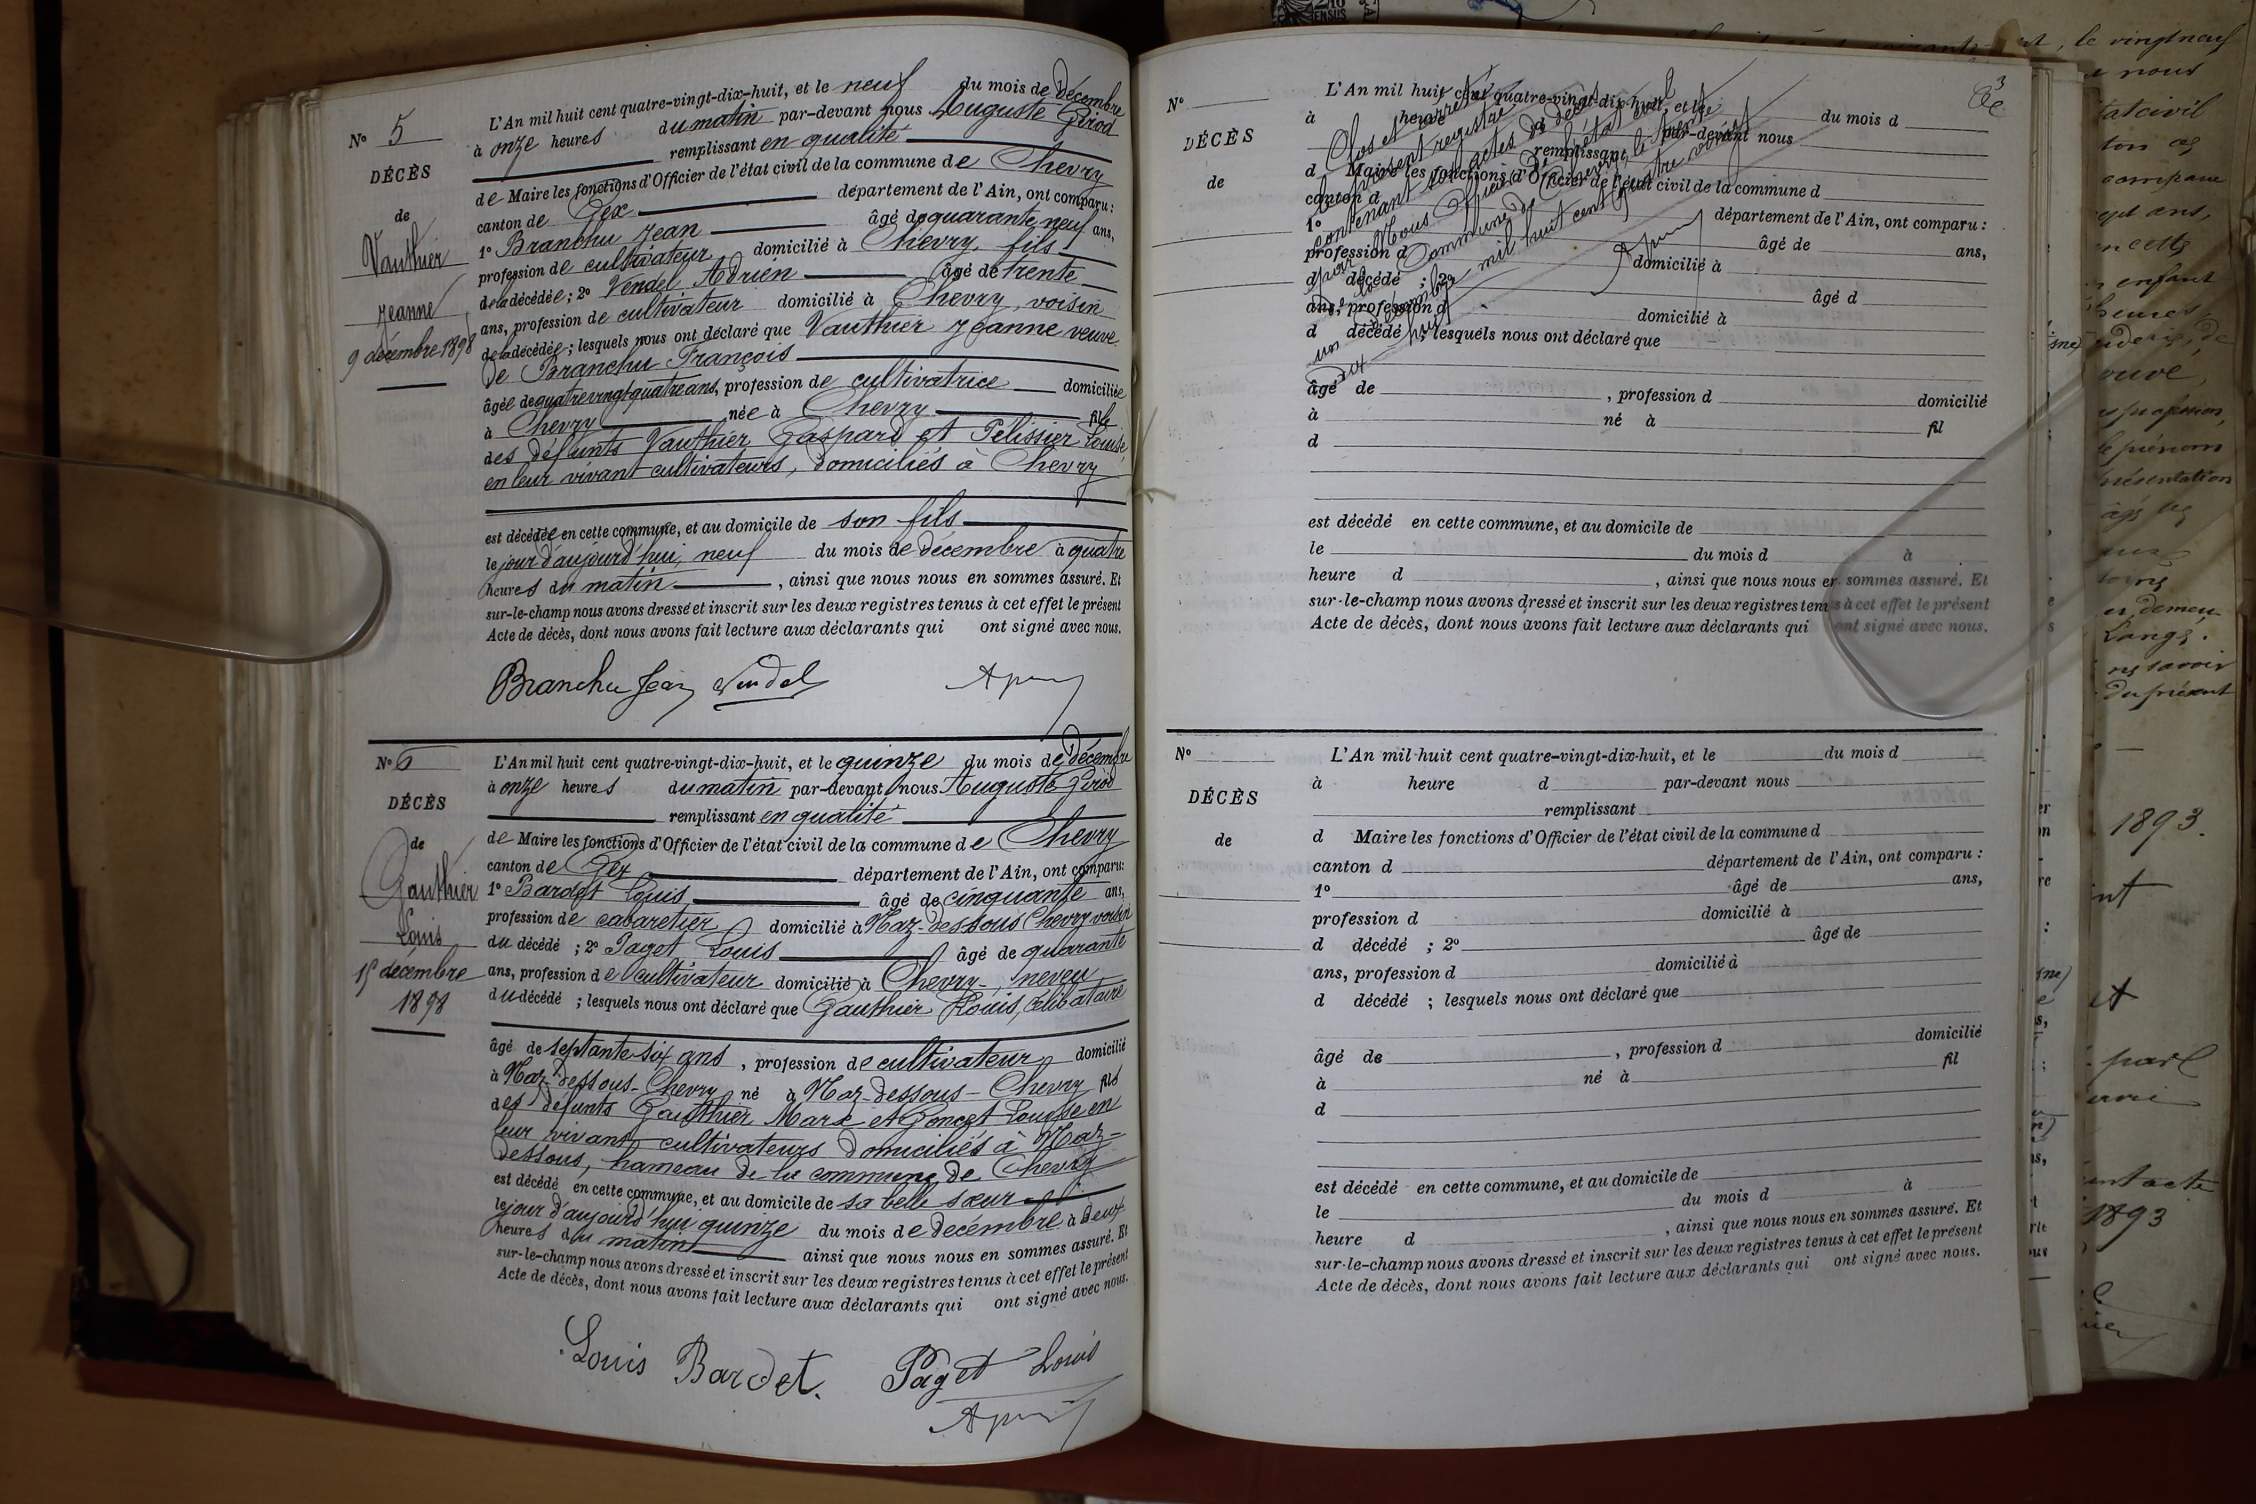 N° 5
DÉCÈS
de
Vauthier
Jeanne
9 décembre 1898
L'An mil huit cent quatre-vingt-dix-huit, et le neuf du mois de Décembre
à onze heures du matin par-devant nous Auguste Girod
remplissant en qualité
de Maire les fonctions d'Officier de l'état civil de la commune de Chevry
canton de Gex département de l'Ain, ont comparu :
1° Branchu Jean âgé de quarante neuf ans,
profession de cultivateur domicilié à Chevry, fils
de la décédée ; 2° Vendel Adrien âgé de trente
ans, profession de cultivateur domicilié à Chevry, voisin
de la décédée ; lesquels nous ont déclaré que Vauthier Jeanne veuve
de Branchu François
âgée de quatre vingt quatre ans, profession de cultivatrice domiciliée
à Chevry née à Chevry fille
des défunts Vauthier Gaspard et Pelissier Louise,
en leur vivant cultivateurs, domiciliés à Chevry
est décédée en cette commune, et au domicile de son fils
le jour d'aujourd'hui, neuf du mois de décembre à quatre
heures du matin, ainsi que nous nous en sommes assuré. Et
sur-le-champ nous avons dressé et inscrit sur les deux registres tenus à cet effet le présent
Acte de décès, dont nous avons fait lecture aux déclarants qui ont signé avec nous.
Branchu Jean Vendel
N° 6
DÉCÈS
de
Gauthier
Louis
15 décembre
1898
L'An mil huit cent quatre-vingt-dix-huit, et le quinze du mois de Décembre
à onze heures du matin par-devant nous Auguste Girod
remplissant en qualité
de Maire les fonctions d'Officier de l'état civil de la commune de Chevry
canton de Gex département de l'Ain, ont comparu :
1° Bardet Louis âgé de cinquante ans,
profession de cabaretier domicilié à Naz-dessous Chevry voisin
du décédé ; 2° Paget Louis âgé de quarante
ans, profession de cultivateur domicilié à Chevry, neveu
du décédé ; lesquels nous ont déclaré que Gauthier Louis, célibataire
âgé de septante six ans, profession de cultivateur domicilié
à Naz-dessous-Chevry né à Naz-dessous-Chevry fils
des défunts Gauthier Marc et Poncet Louise en
leur vivant cultivateurs domiciliés à Naz-
dessous, hameau de la commune de Chevry
est décédé en cette commune, et au domicile de sa belle sœur
le jour d'aujourd'hui quinze du mois de décembre à deux
heures du matin ainsi que nous nous en sommes assuré. Et
sur-le-champ nous avons dressé et inscrit sur les deux registres tenus à cet effet le présent
Acte de décès, dont nous avons fait lecture aux déclarants qui ont signé avec nous.
Louis Bardet. Paget Louis
3
N°
DÉCÈS
de
L'An mil huit cent quatre-vingt-dix-huit, et le du mois d
à heure d par-devant nous
remplissant
d Maire les fonctions d'Officier de l'état civil de la commune d
canton d département de l'Ain, ont comparu :
1° âgé de ans,
profession d domicilié à
d décédé ; 2° âgé d
ans, profession d domicilié à
d décédé ; lesquels nous ont déclaré que
âgé de , profession d domicilié
à né à fil
d
est décédé en cette commune, et au domicile de
le du mois d à
heure d , ainsi que nous nous en sommes assuré. Et
sur-le-champ nous avons dressé et inscrit sur les deux registres tenus à cet effet le présent
Acte de décès, dont nous avons fait lecture aux déclarants qui ont signé avec nous.
Clos et arrêté
le présent registre
contenant six actes de décès
par Nous Officier de l'état civil
de la Commune de Chevry, le trente
un décembre mil huit cent quatre vingt
dix-huit
N°
DÉCÈS
de
L'An mil huit cent quatre-vingt-dix-huit, et le du mois d
à heure d par-devant nous
remplissant
d Maire les fonctions d'Officier de l'état civil de la commune d
canton d département de l'Ain, ont comparu :
1° âgé de ans,
profession d domicilié à
d décédé ; 2° âgé de
ans, profession d domicilié à
d décédé ; lesquels nous ont déclaré que
âgé de , profession d domicilié
à né à fil
d
est décédé en cette commune, et au domicile de
le du mois d à
heure d , ainsi que nous nous en sommes assuré. Et
sur-le-champ nous avons dressé et inscrit sur les deux registres tenus à cet effet le présent
Acte de décès, dont nous avons fait lecture aux déclarants qui ont signé avec nous.
le vingt neuf
nous
enfant
1893.
1893